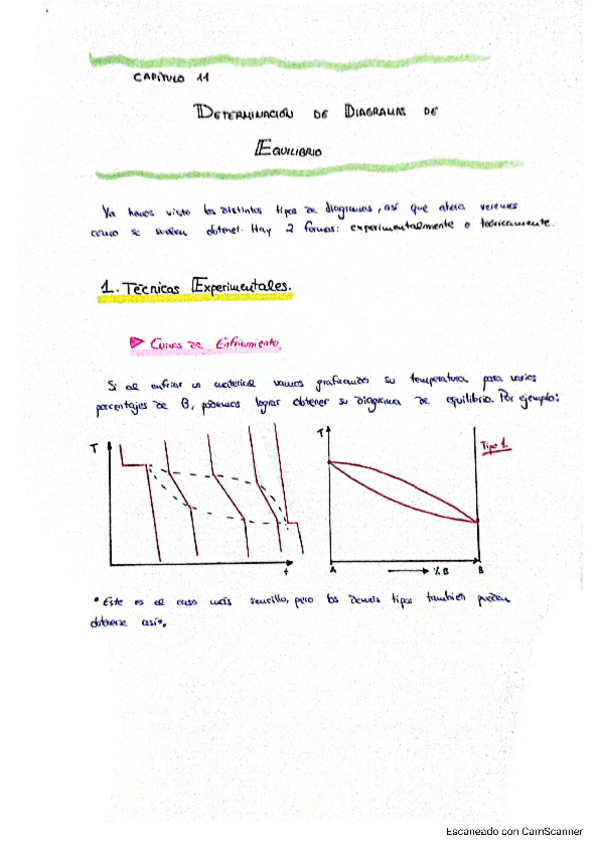 CAPÍTULO 11
DETERMINACIÓN DE DIAGRAMAS DE
EQUILIBRIO
Ya hemos visto los distintos tipos de diagramas, así que ahora veremos
como se suelen obtener. Hay 2 formas: experimentalmente o teóricamente.
1. Técnicas Experimentales.
Curvas de Enfriamiento.
Si al enfriar un material vamos graficando su temperatura para varios
porcentajes de B, podemos lograr obtener su diagrama de equilibrio. Por ejemplo:
T
t
T
Tipo 1.
A
% B
B
* Este es el caso más sencillo, pero los demás tipos también pueden
obtenerse así*.
Escaneado con CamScanner